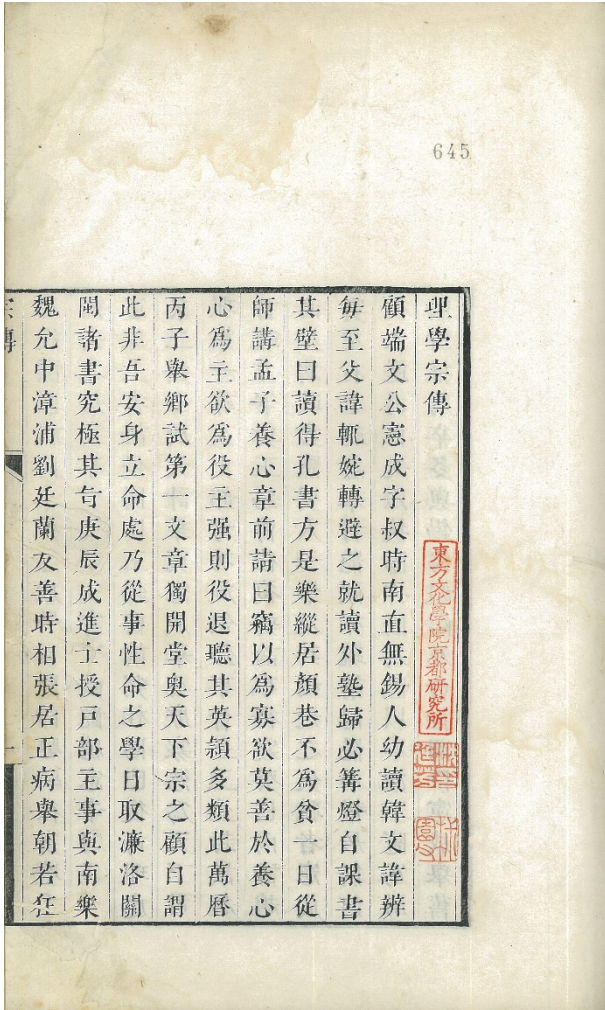 645
理學宗傳
東方文化學院京都研究所
顧端文公憲成字叔時南直無錫人幼讀韓文諱辨
毎至父諱輒婉轉避之就讀外塾歸必篝燈自課書
其壁曰讀得孔書方是樂縱居顏巷不為貧一日從
師講孟子養心章前請曰竊以為寡欲莫善於養心
心為主欲為役主强則役退聽其英頴多類此萬曆
丙子舉鄉試第一文章獨開堂奧天下宗之顧自謂
此非吾安身立命處乃從事性命之學日取濂洛關
閩諸書究極其旨庚辰成進士授戸部主事與南樂
魏允中漳浦劉廷蘭友善時相張居正病舉朝若狂
宗傳
一